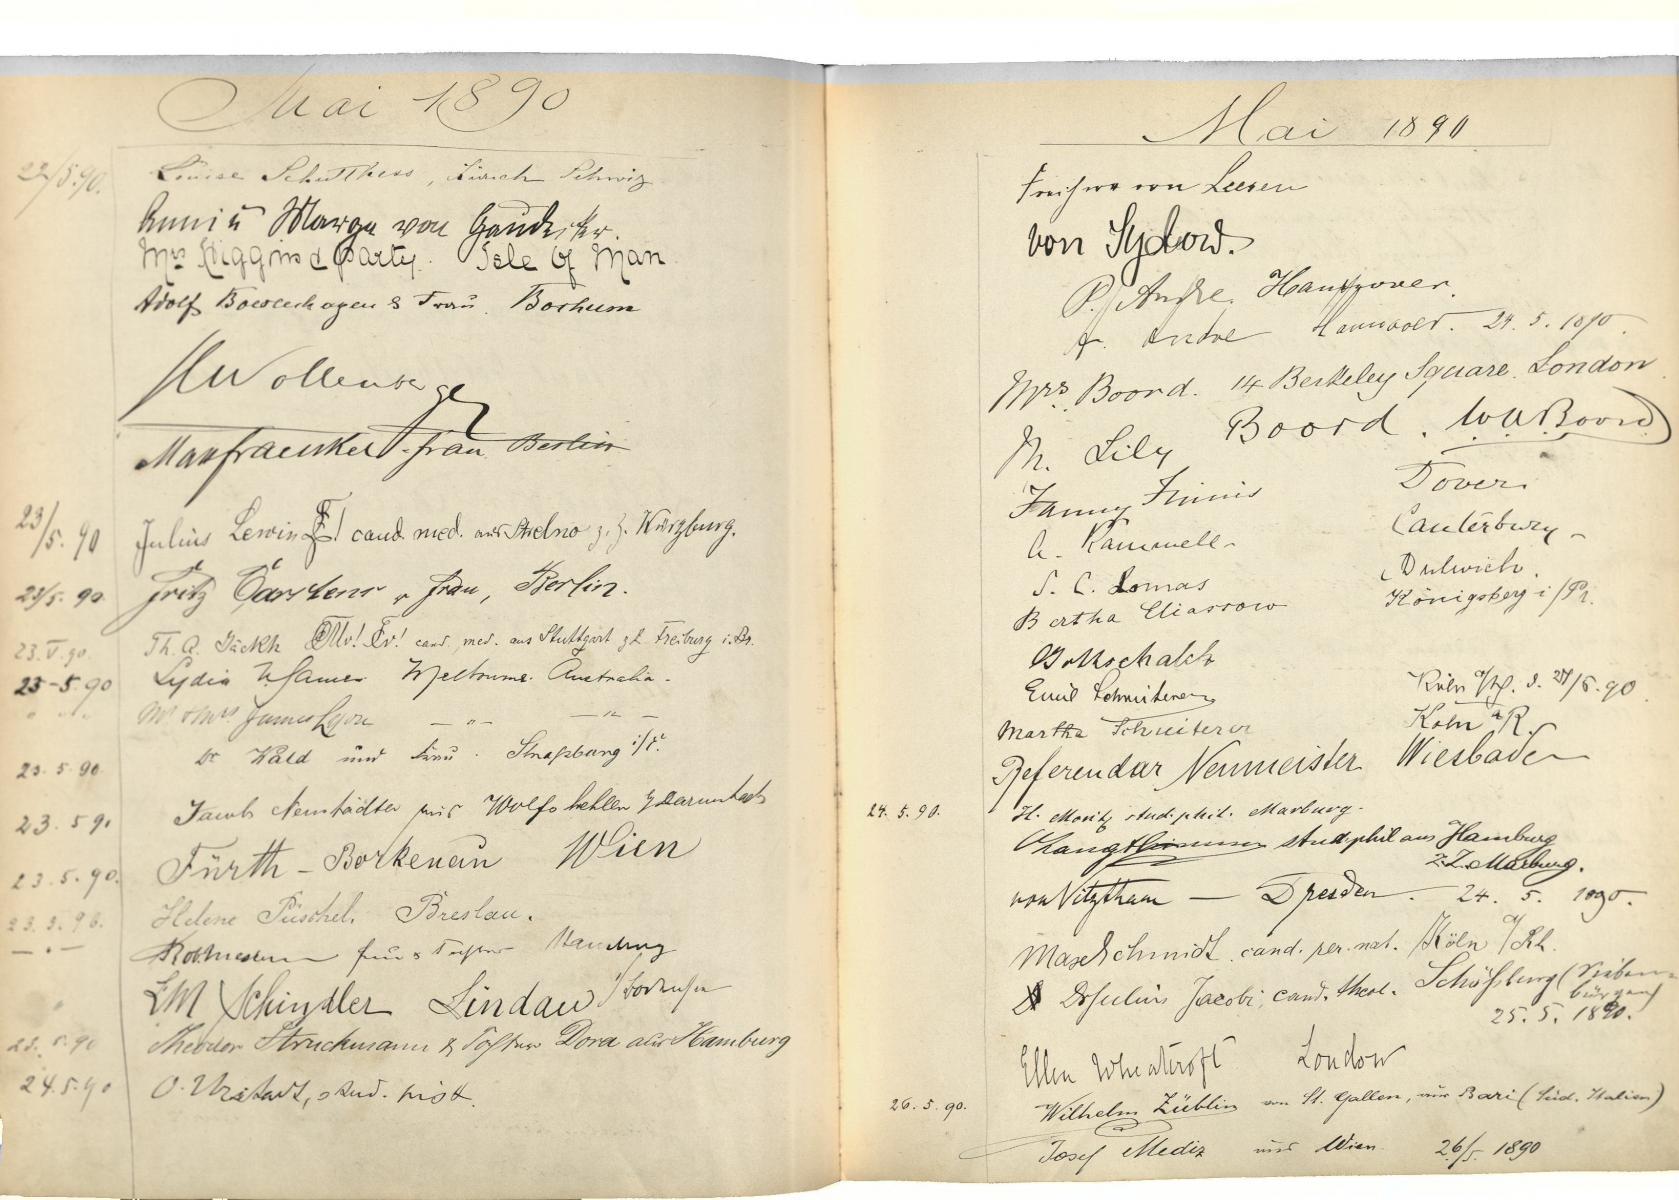 Mai 1890
22/5.90. Louise Schulthess, Zürich Schweiz
Anni u Marga von
Mrs Higgins & Party. Isle of Man
Adolf & Frau. Bochum
Wollenberger
Max Fraenkel Frau Berlin
23/5. 90 Julius Lewin cand. med. aus z. Z. Würzburg.
23/5. 90 Fritz Carstens u Frau, Berlin.
23.V.90. Th. A. Jäckh cand. med. aus Stuttgart z Z. Freiburg i. Br.
23-5.90 Lydia Melbourne. Australia.
" " " Mr & Mrs James Lyon — " — — " —
23.5.90 Dr Wald und Frau. Straßburg i/E.
23.5 90 Jacob Neustädter aus Wolfskehlen
23.5.90. Fürth - Borkenau Wien
23.5.90. Helene Püschel. Breslau.
— " — Frau & Tochter Hamburg
E M Schindler Lindau i/Bodensee
23.5.90 Theodor Struckmann & Tochter Dora aus Hamburg
24.5.90 O. stud. hist.
Mai 1890
von
von Sydow.
P. Andre. Hannover.
A. Andre Hannover. 24.5.1890.
Mrs. Boord. 14 Berkeley Square. London
M. Lily Boord. W A Boord
Fanny Finnis Dover.
A. Rammell Canterbury
S. C. Lomas Dulwich.
Bertha Eliassow Königsberg i/Pr.
Gottschalch
Emil Schniterer Köln a/Rh. d. 24/5.90
Martha Schniterer Köln a R.
Referendar Neumeister Wiesbaden
24.5.90. H. Moritz stud. phil. Marburg.
stud phil aus Hamburg
z. Z. Marburg.
von Vitzthum — Dresden. 24. 5. 1890.
Max Schmidt. cand. rer. nat. Köln a/Rh.
Dr Julius Jacobi, cand. theol. Schäßburg (Siebenbürgen)
25.5.1890.
Ellen Wheatcroft London
26.5.90. Wilhelm Züblin von St. Gallen, aus Bari (Süd. Italien)
Josef Mediz aus Wien 26/5. 1890